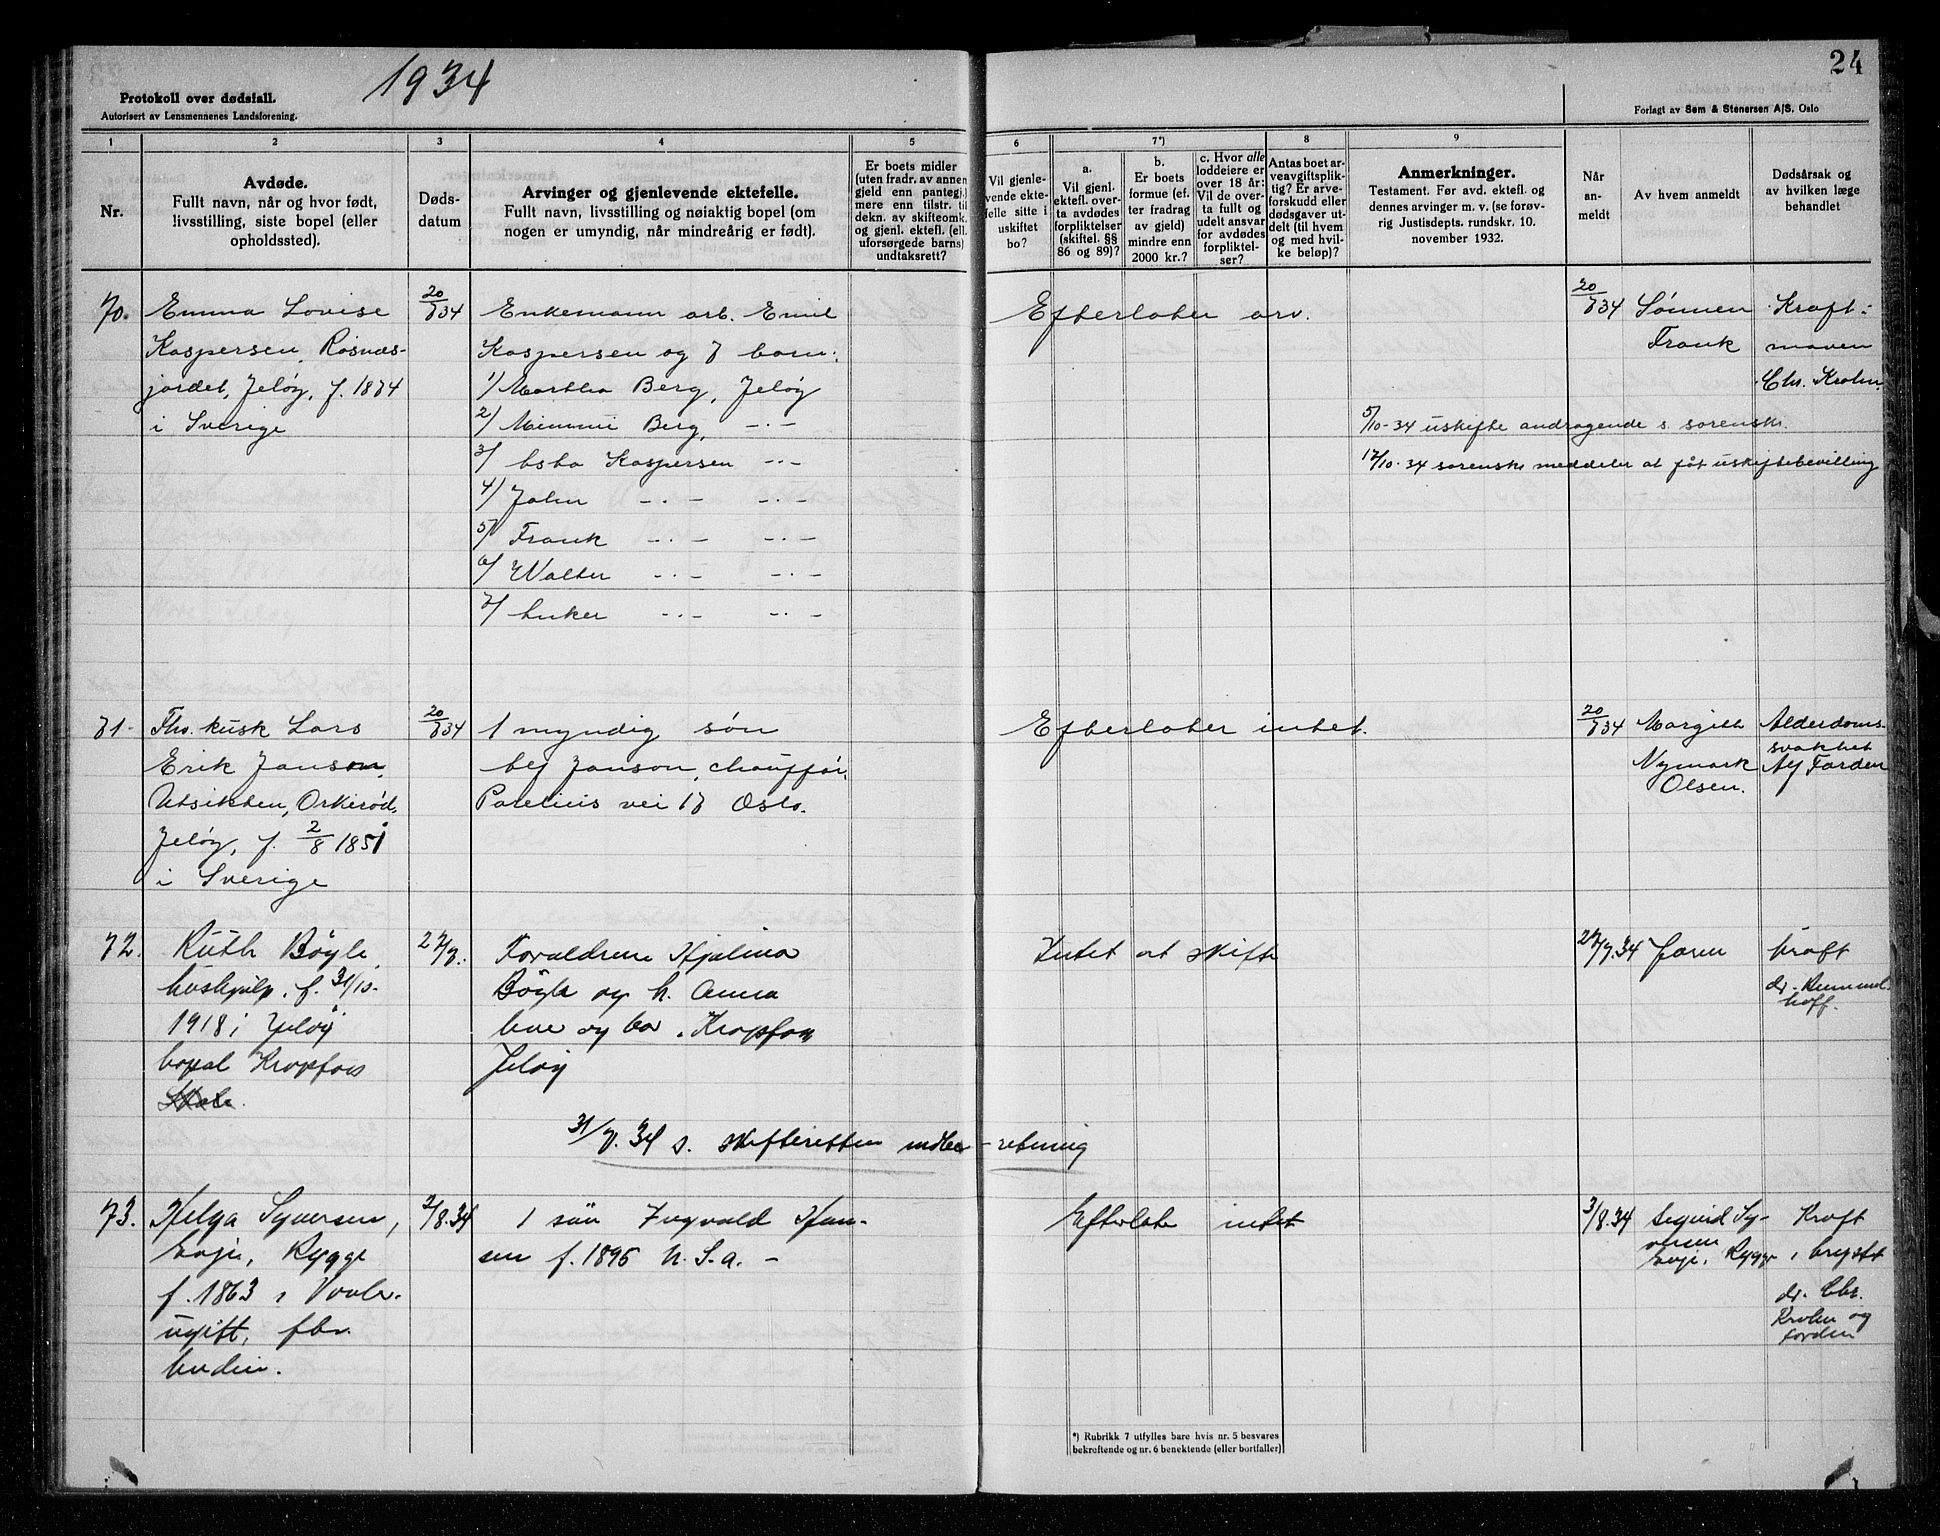 1934
24
Protokoll over dødsfall.
Autorisert av Lensmennenes Landsforening.
Forlagt av Søm & Stenersen A/S. Oslo
1
2
3
4
5
6
7*)
8
9
Nr.
Avdøde.
Fullt navn, når og hvor født,
livsstilling, siste bopel (eller
opholdssted).
Døds-
datum
Arvinger og gjenlevende ektefelle.
Fullt navn, livsstilling og nøiaktig bopel (om
nogen er umyndig, når mindreårig er født).
Er boets midler
(uten fradr. av annen
gjeld enn pantegj.)
mere enn tilstr. til
dekn. av skifteomk.
og gjenl. ektefl. (ell.
uforsørgede barns)
undtaksrett?
Vil gjenle-
vende ekte-
felle sitte i
uskiftet
bo?
a.
Vil gjenl.
ektefl. over-
ta avdødes
forpliktelser
(skiftel. §§
86 og 89)?
b.
Er boets
formue (ef-
ter fradrag
av gjeld)
mindre enn
2000 kr.?
c. Hvor alle
loddeiere er
over 18 år:
Vil de over-
ta fullt og
udelt ansvar
for avdødes
forpliktel-
ser?
Antas boet ar-
veavgiftsplik-
tig? Er arve-
forskudd eller
dødsgaver ut-
delt (til hvem
og med hvil-
ke beløp)?
Anmerkninger.
Testament. Før avd. ektefl. og
dennes arvinger m. v. (se forøv-
rig Justisdepts. rundskr. 10.
november 1932.
Når
an-
meldt
Av hvem anmeldt
Dødsårsak og
av hvilken læge
behandlet
70.
Emma Lovise
Kaspersen, Rosnæs-
jordet, Jeløy, f. 1874
i Sverige
20/7 34
Enkemann arb. Emil
Kaspersen og 7 barn:
1/ Martha Berg, Jeløy
2/ Mimmi Berg, -·-
3/ Asta Kaspersen -·-
4/ John -·- -·-
5/ Frank -·- -·-
6/ Walter -·- -·-
7/ -·- -·-
Efterlater arv.
5/10-34 uskifte andragende s. sorenskr.
17/10-34 sorenskr. meddeler at fåt uskiftebevilling
20/7 34
Sønnen
Frank
Kraft i
maven
Chr. Krohn.
71.
Fhv. kusk Lars
Erik Janson,
Utsikten, Orkerød,
Jeløy, f. 2/8 1851
i Sverige
20/7 34
1 myndig søn
Alf Janson, chauffør,
Parelius vei 17 Oslo.
Efterlater intet.
20/7 34
Margith
Nymark
Olsen.
Alderdoms-
svakhet
Alf Farden
72.
Ruth Bøyle,
hushjelp, f. 31/10-
1918 i Jeløy
bopæl Kropfoss
27/7.
Forældrene Hjalmar
Bøyle og h. Anna
hue og bor i Kropfoss
Jeløy
Intet at skifte
27/7.34
Faren
kræft
dr. Hummel-
hoff.
31/7. 34 s. skifteretten indber-retning
73.
Helga Syversen,
Euje, Rygge
f. 1863 i Vaaler.
ugift, fbr.
2/8.34
1 søn Ingvald Han-
sen f. 1895 U. S. a. -
Efterlater intet
3/8.34
Sigurd Sy-
versen
Eveje, Rygge
Kræft
i bryst
dr. Chr.
Krohn og
Farden
*) Rubrikk 7 utfylles bare hvis nr. 5 besvares
bekreftende og nr. 6 benektende (eller bortfaller)